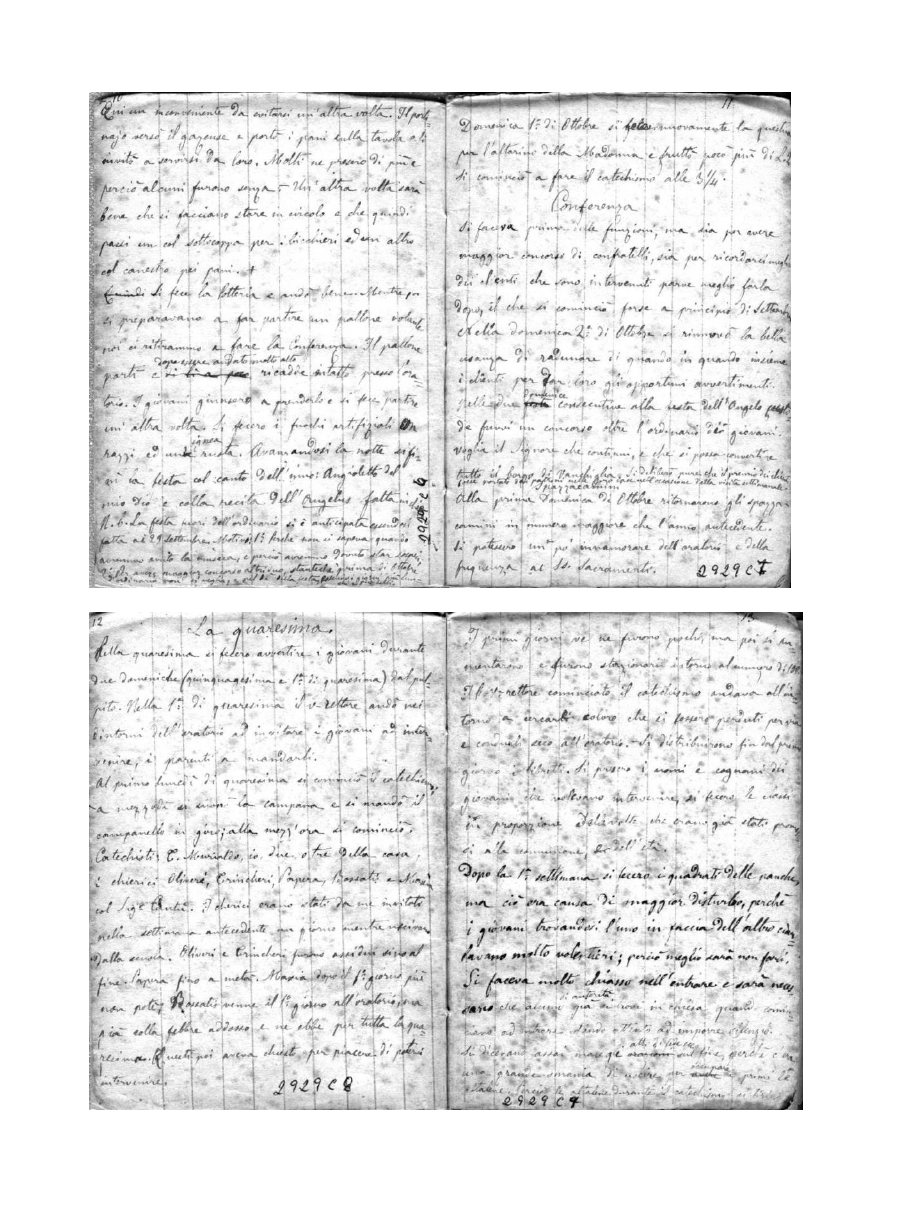 10
Qui un inconveniente da evitarsi un'altra volta. Il porti-
najo versò il gazeuse e portò i pani sulla tavola e li
invitò a servirsi da loro. Molti ne presero di più e
perciò alcuni furono senza. Un'altra volta sarà
bene che si facciano stare in circolo e che quindi
passi un col sottocoppa per i bicchieri ed un altro
col canestro pei pani.
Quindi Si fece la lotteria e andò bene. Mentre poi
si preparavano a far partire un pallone volante
noi ci ritirammo a fare la Conferenza. Il pallone
dopo essere andato molto alto
partì e ricadde intatto presso l'ora-
torio. I giovani giunsero a prenderlo e si fece partire
un'altra volta. Si fecero i fuochi artifiziali
ignea
razzi ed una ruota. Avanzandosi la notte si fi-
nì la festa col canto dell'inno: Angioletto del
mio Dio e colla recita dell'Angelus
N.b. La festa fuori dell'ordinario si è anticipata essendosi
fatta ai 29 settembre. Motivi 1° Perchè non si sapeva quando
avremmo avuto la musica, e perciò avremmo dovuto star senza.
2929 C 6
11
Domenica 1ª di Ottobre si fece nuovamente la questua
per l'altarino della Madonna e fruttò poco più di
Si cominciò a fare il catechismo alle 3¼.
Conferenza
Si faceva prima delle funzioni, ma sia per avere
maggior concorso di confratelli, sia per ricordarci meglio
dei clienti, che sono intervenuti parve meglio farla
dopo, il che si cominciò forse a principio di Settembre
Nella domenica 2ª di Ottobre si rinnovò la bella
usanza di radunare di quando in quando insieme
i clienti per dar loro gli opportuni avvertimenti.
domeniche
Nelle due consecutive alla festa dell'Angelo
de fuvvi un concorso oltre l'ordinario dei giovani.
Voglia il Signore che continui, e che si possa convertire
tutto il borgo di Vanchiglia. Si deliberò pure che il premio dei clienti
nell'occasione della visita settimanale.
spazzacamini
Alla prima Domenica di Ottobre ritornarono gli spazza
camini in numero maggiore che l'anno antecedente.
Si potessero un po' innamorare dell'oratorio e della
frequenza ai SS. Sacramenti.
2929 C 7
12
La quaresima.
Nella quaresima si fecero avvertire i giovani durante
due domeniche (quinquagesima e 1ª di quaresima) dal pul-
pito. Nella 1ª di quaresima il v-rettore andò nei
dintorni dell'oratorio ad invitare i giovani ad inter-
venire, i parenti a mandarli.
Al primo lunedì di quaresima si cominciò il catechismo
a mezzodì si suonò la campana e si mandò il
campanello in giro; alla mezz'ora si cominciò.
Catechisti: T. Murialdo, io, due, o tre della casa,
i chierici Oliveri, Cirincheri, Papera, Bossati e Masia
col Sigr Cantù. I chierici erano stati da me invitati
nella settimana antecedente un giorno mentre uscivano
dalla scuola. Oliveri e Cirincheri furono assidui sino al
fine. Papera fino a metà. Masia dopo il 1° giorno più
non potè, Bossati venne il 1° giorno all'oratorio, ma
già colla febbre addosso e ne ebbe per tutta la qua
resima. Questi poi aveva chiesto per piacere di potervi
intervenire.
2929 C 8
13
I primi giorni ve ne furono pochi, ma poi si au
mentarono e furono stazionarii intorno al numero di 100
Il v-rettore cominciato il catechismo andava all'in
torno a cercar coloro che si fossero perduti per via
e condurli seco all'oratorio. Si distribuirono fin dal primo
giorno i libretti. Si presero i nomi e cognomi dei
giovani che volevano intervenire, si fecero le classi
in proporzione delle volte che erano già stati promos
si alla comunione, e dell'età.
Dopo la 1ª settimana si fecero i quadrati delle panche,
ma ciò era causa di maggior disturbo, perchè
i giovani trovandosi l'uno in faccia dell'altro ciar-
lavano molto volentieri; perciò meglio sarà non farli.
Si faceva molto chiasso nell'entrare e sarà neces
di autorità
sario che alcuno già si trovi in chiesa quando comin
ciano ad entrare ad imporre silenzio.
Si dicevano assai male gli atti di fede ecc. sul fine, perchè c'era
una grande smania di uscire,
2929 C 9